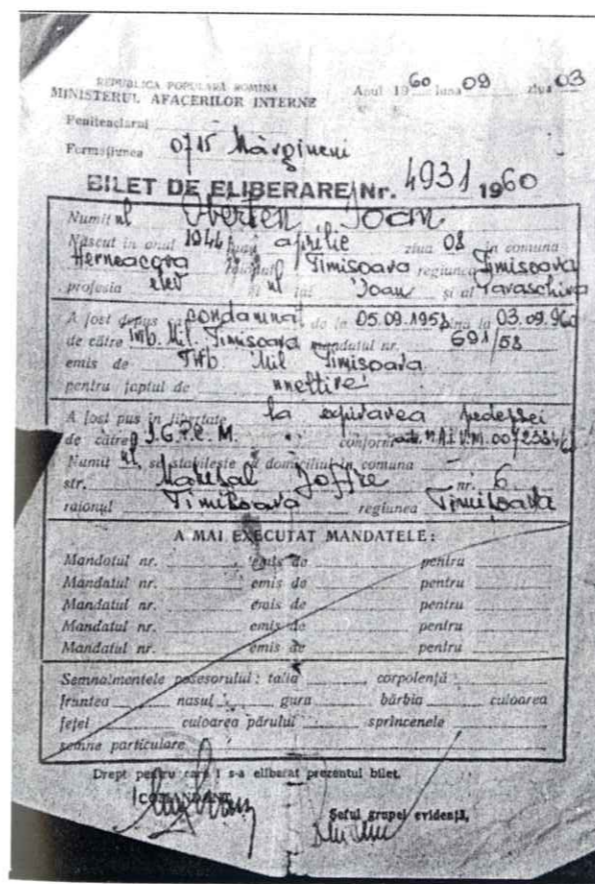 REPUBLICA POPULARĂ ROMÎNĂ
MINISTERUL AFACERILOR INTERNE
Anul 1960 luna 09 ziua 03
Penitenciarul
Formațiunea 0715 Mărgineni
BILET DE ELIBERARE Nr. 4931 1960
Numitul Oberten Ioan
Născut în anul 1944 luna aprilie ziua 08 în comuna
Herneacova raionul Timisoara regiunea Timisoara
profesia elev fiul lui Ioan și al Paraschiva
A fost depus condamnat de la 05.09.1958 pînă la 03.09.960
de către Trib. Mil. Timisoara mandatul nr. 691/58
emis de Trib Mil Timisoara
pentru faptul de uneltire
A fost pus în libertate la expirarea pedepsei
de către conform
Numitul se stabilește cu domiciliul în comuna
str. Maresal Joffre nr. 6
raionul Timisoara regiunea Timisoara
A MAI EXECUTAT MANDATELE:
Mandatul nr. emis de pentru
Mandatul nr. emis de pentru
Mandatul nr. emis de pentru
Mandatul nr. emis de pentru
Mandatul nr. emis de pentru
Semnalmentele posesorului: talia corpolență
fruntea nasul gura bărbia culoarea
feței culoarea părului sprîncenele
semne particulare
Drept pentru care i s-a eliberat prezentul bilet.
COMANDANT
Șeful grupei evidență,